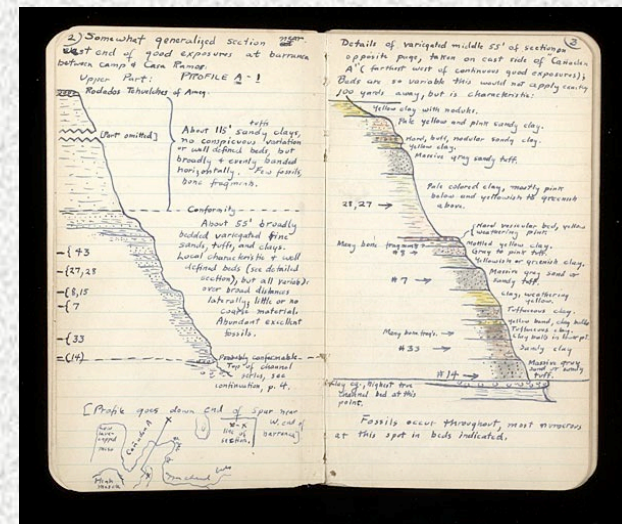 2) Somewhat generalized section near
east end of good exposures at barranca
between camp & Casa Ramos.
Upper Part: PROFILE A-1
Rodados Tehuelches of Amegh.
[Part omitted]
About 115' sandy clays, tuffs
no conspicuous variation
or well defined beds, but
broadly & evenly banded
horizontally. Few fossils,
bone fragments.
Conformity
About 55' broadly
bedded variegated fine
sands, tuffs, and clays.
Local characteristic & well
defined beds (see detailed
section), but all variable
over broad distances
laterally, little or no
coarse material.
Abundant excellent
fossils.
43
27, 28
8, 15
7
33
(14)
Probably conformable.
Top of channel
series, see
continuation, p. 4.
[Profile goes down end of spur near
W. end of
barranca]
x-x
line of
section.
Cañadon A
High
(3)
Details of variegated middle 55' of section on
opposite page, taken on east side of Cañadon
A (farthest west of continuous good exposures);
Beds are so variable this would not apply exactly
100 yards away, but is characteristic:
Yellow clay with nodules.
Pale yellow and pink sandy clay.
Hard, buff, nodular sandy clay.
Yellow clay.
Massive gray sandy tuff.
Pale colored clay, mostly pink
below and yellowish to greenish
above.
28, 27
Hard vesicular bed, yellow
weathering pink.
Many bone fragments
Mottled yellow clay.
Gray to pink tuff.
Yellowish or greenish clay.
#7
Massive gray sand or
sandy tuff.
Clay, weathering
yellow.
Tuffaceous clay.
Yellow band, clay balls
Tuffaceous clay.
clay balls in lower pt.
Many bone frags.
#33
Sandy clay
Massive gray
sand or sandy
tuff.
#14
highest true
channel bed at this
point.
Fossils occur throughout, most numerous
at this spot in beds indicated.